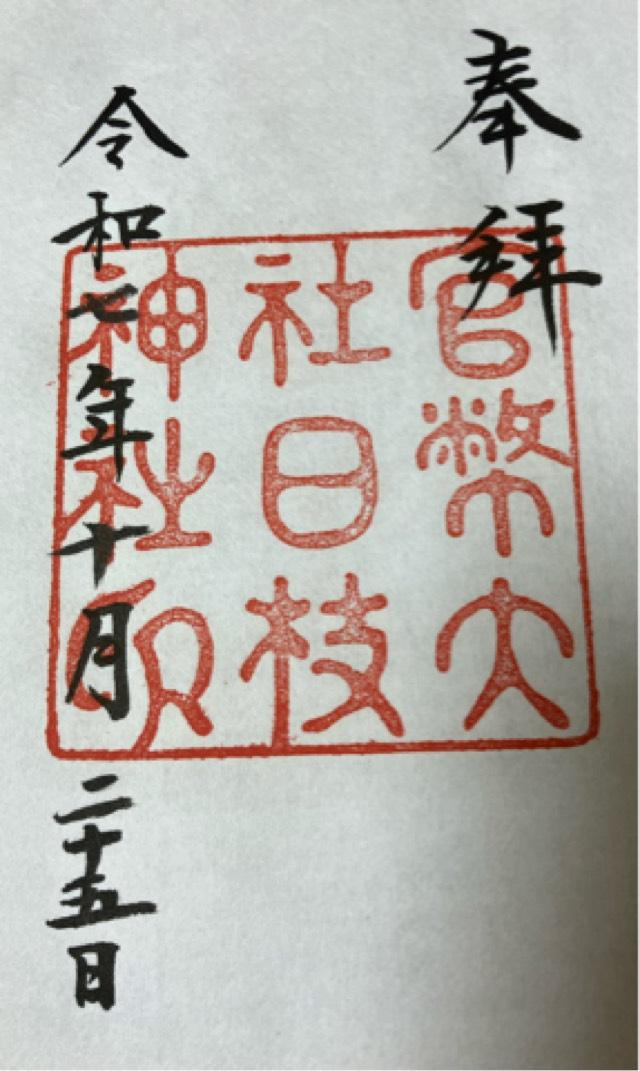 奉拝
官幣大
社日枝
神社印
令和七年十月二十五日